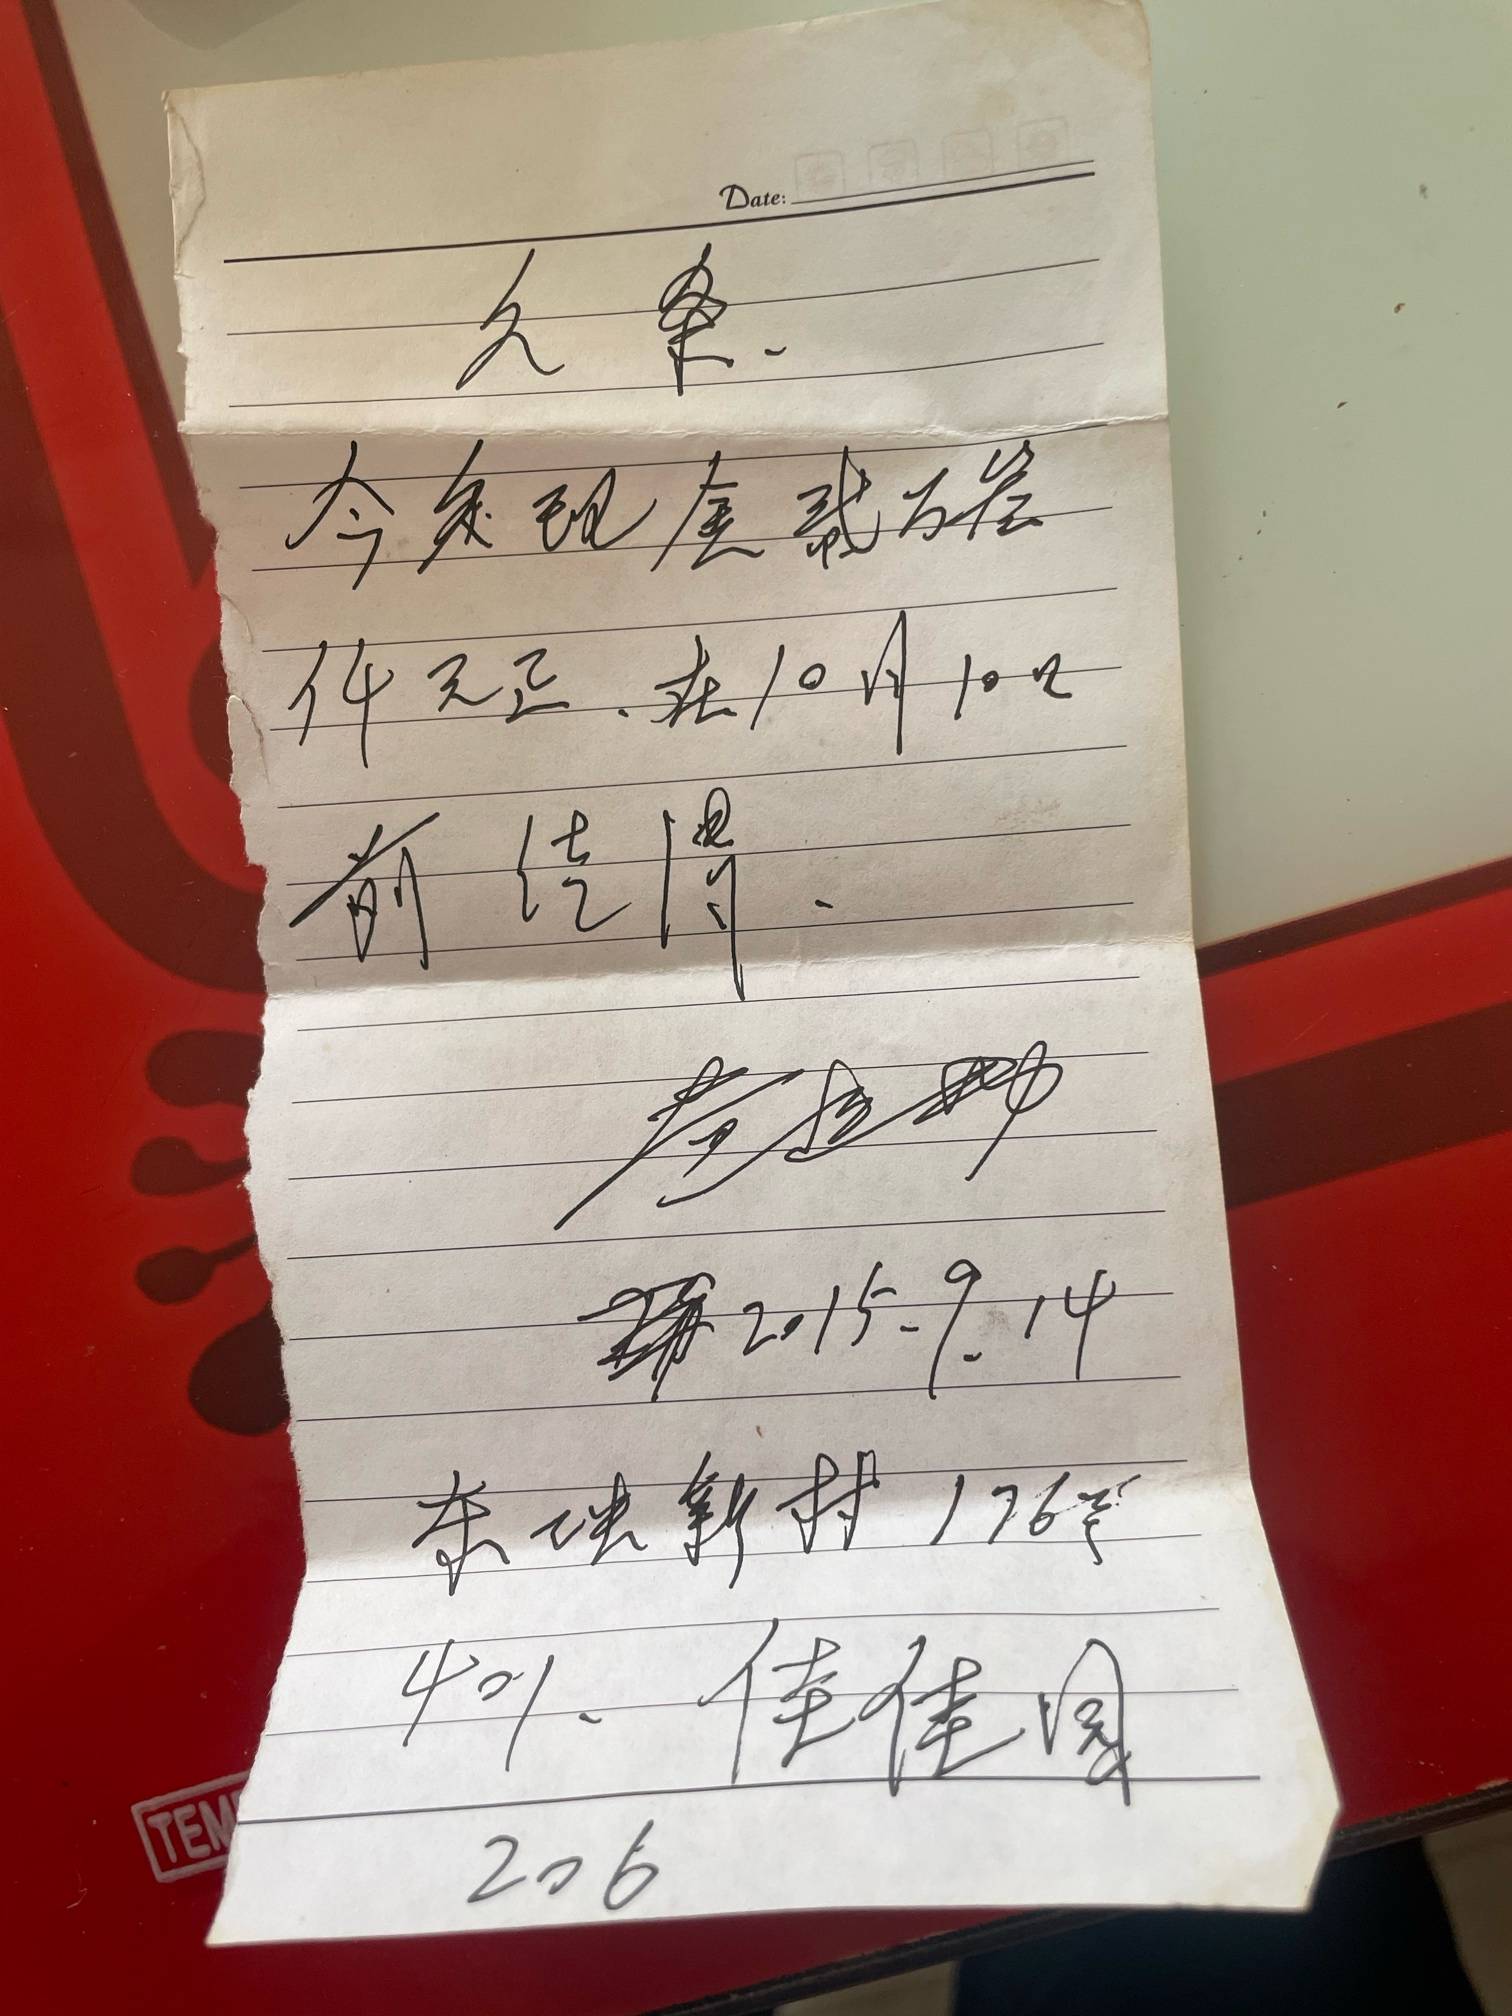 Date:
欠条.
今欠现金贰万叁
仟元正、在10月10日
前结清.
2015.9.14
东 新村176号
401. 佳佳园
206
TEM